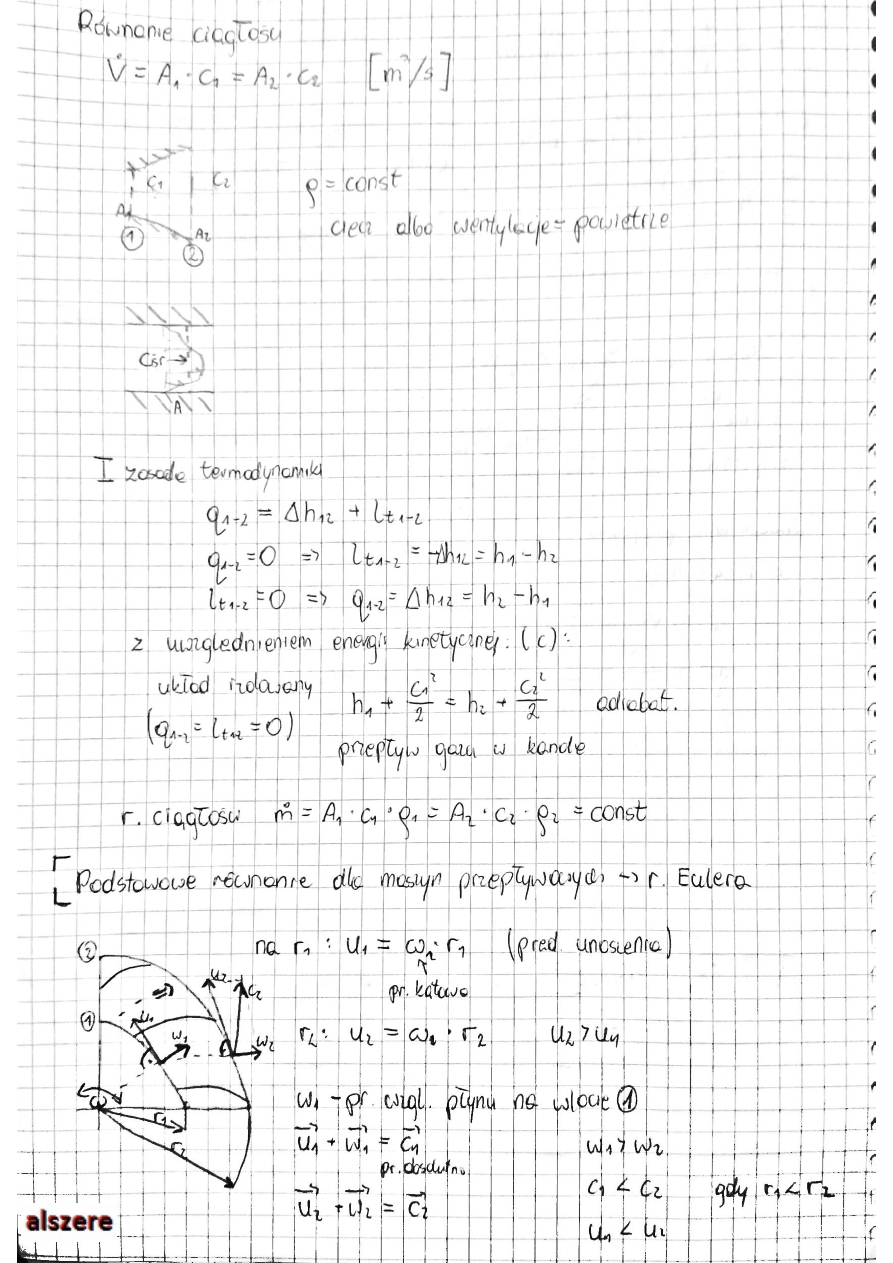 Równanie ciągłości
V̇ = A₁ · c₁ = A₂ · c₂ [m³/s]
c₁ c₂
A₁
① A₂
②
ρ = const
ciecz albo wentylacje = powietrze
cśr →
A
I zasada termodynamiki
q₁₋₂ = Δh₁₂ + lt₁₋₂
q₁₋₂ = 0 => lt₁₋₂ = -Δh₁₂ = h₁ - h₂
lt₁₋₂ = 0 => q₁₋₂ = Δh₁₂ = h₂ - h₁
z uwzględnieniem energii kinetycznej (c):
układ izolowany
(q₁₋₂ = lt₁₂ = 0)
h₁ + c₁²/2 = h₂ + c₂²/2 adiabat.
przepływ gazu w kanale
r. ciągłości ṁ = A₁ · c₁ · ρ₁ = A₂ · c₂ · ρ₂ = const
Podstawowe równanie dla maszyn przepływowych → r. Eulera
na r₁ : u₁ = ω · r₁ (pręd. unoszenia)
pr. kątowa
r₂: u₂ = ω · r₂ u₂ > u₁
② u₂ c₂
① u₁ w₁ w₂
ω r₁
r₂
w₁ - pr. wzgl. płynu na wlocie ①
u₁ + w₁ = c₁ w₁ > w₂
pr. absolutna
c₁ < c₂ gdy r₁ < r₂
u₂ + w₂ = c₂
u₁ < u₂
alszere